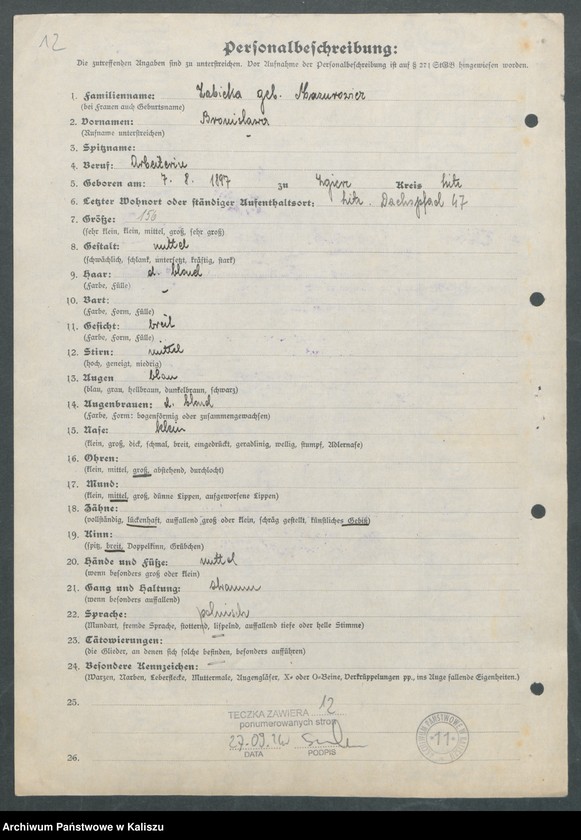 12
Personalbeschreibung:
Die zutreffenden Angaben sind zu unterstreichen. Vor Aufnahme der Personalbeschreibung ist auf § 271 StGB hingewiesen worden.
1. Familienname: Zabicka geb. Mazurowicz
(bei Frauen auch Geburtsname)
2. Vornamen: Bronislawa
(Rufname unterstreichen)
3. Spitzname:
4. Beruf: Arbeiterin
5. Geboren am: 7. 8. 1897 zu Zgierz Kreis Litz
6. Letzter Wohnort oder ständiger Aufenthaltsort: Litz. Dachspfad 47
7. Größe: 156
(sehr klein, klein, mittel, groß, sehr groß)
8. Gestalt: mittel
(schwächlich, schlank, untersetzt, kräftig, stark)
9. Haar: d. blond
(Farbe, Fülle)
10. Bart: –
(Farbe, Form, Fülle)
11. Gesicht: breit
(Farbe, Form, Fülle)
12. Stirn: mittel
(hoch, geneigt, niedrig)
13. Augen blau
(blau, grau, hellbraun, dunkelbraun, schwarz)
14. Augenbrauen: d. blond
(Farbe, Form: bogenförmig oder zusammengewachsen)
15. Nase: klein
(klein, groß, dick, schmal, breit, eingedrückt, geradlinig, wellig, stumpf, Adlernase)
16. Ohren:
(klein, mittel, groß, abstehend, durchlocht)
17. Mund:
(klein, mittel, groß, dünne Lippen, aufgeworfene Lippen)
18. Zähne:
(vollständig, lückenhaft, auffallend groß oder klein, schräg gestellt, künstliches Gebiß)
19. Kinn:
(spitz, breit, Doppelkinn, Grübchen)
20. Hände und Füße: mittel
(wenn besonders groß oder klein)
21. Gang und Haltung: stramm
(wenn besonders auffallend)
22. Sprache: polnisch
(Mundart, fremde Sprache, stotternd, lispelnd, auffallend tiefe oder helle Stimme)
23. Tätowierungen: –
(die Glieder, an denen sich solche befinden, besonders aufführen)
24. Besondere Kennzeichen: –
(Warzen, Narben, Leberflecke, Muttermale, Augengläser, X- oder O-Beine, Verkrüppelungen pp., ins Auge fallende Eigenheiten.)
25.
TECZKA ZAWIERA 12
ponumerowanych stron
27.09.16
DATA PODPIS
11
26.
Archiwum Państwowe w Kaliszu